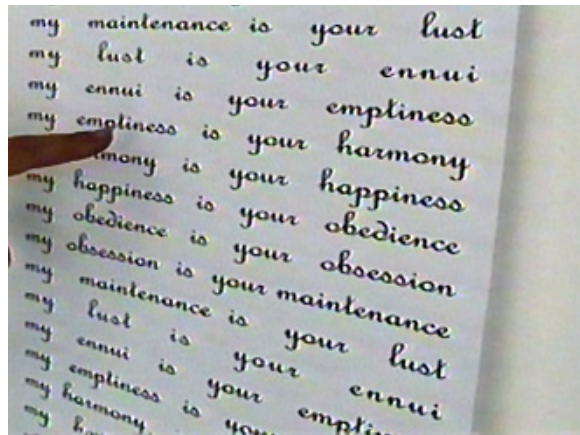 my maintenance is your lust
my lust is your ennui
my ennui is your emptiness
my emptiness is your harmony
mony is your happiness
my happiness is your obedience
my obedience is your obsession
my obsession is your maintenance
my maintenance is your lust
my lust is your ennui
my ennui is your emptin
my emptiness is you
my harmony
my